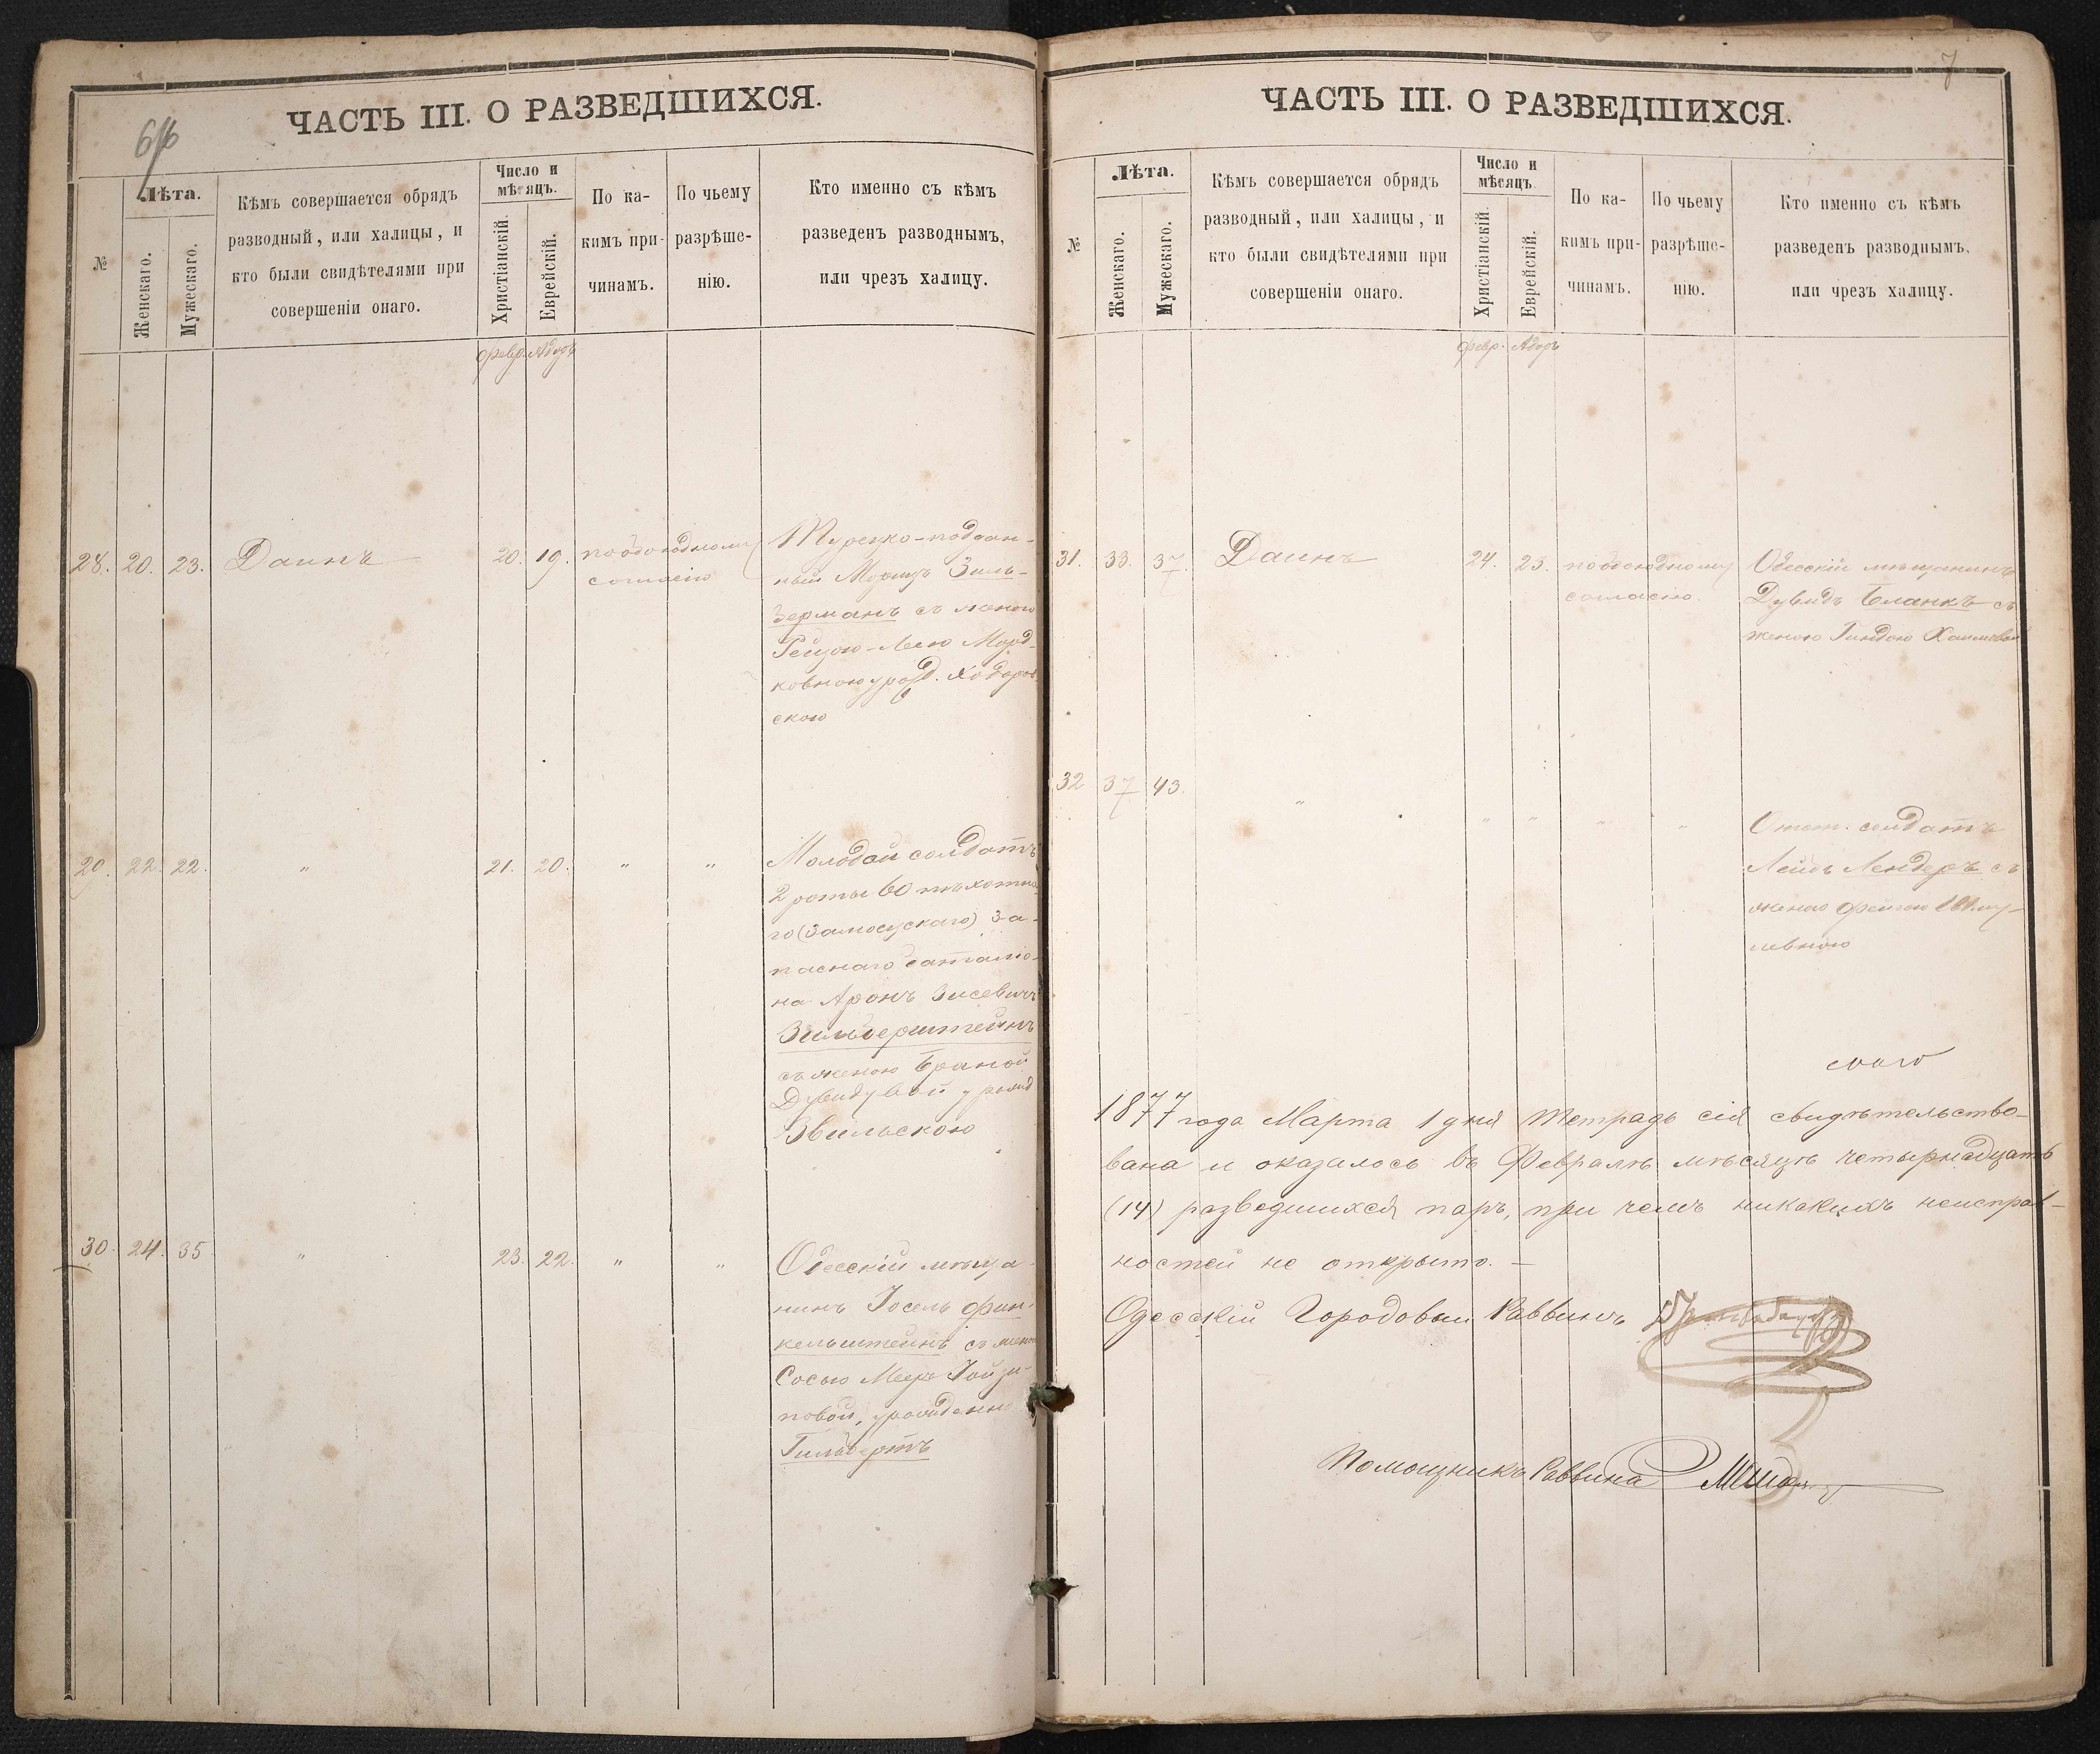 6
ЧАСТЬ III. О РАЗВЕДШИХСЯ.
№
Лѣта.
Женскаго.
Мужескаго.
Кѣмъ совершается обрядъ
разводный, или халицы, и
кто были свидѣтелями при
совершеніи онаго.
Число и
мѣсяцъ.
Христіанскій.
Еврейскій.
По ка-
кимъ при-
чинамъ.
По чьему
разрѣше-
нію.
Кто именно съ кѣмъ
разведенъ разводнымъ,
или чрезъ халицу.
февр. Адаръ
28. 20. 23. Даинъ 20. 19. по обоюдному
согласію
Турецко-поддан-
ный Морицъ Зиль-
берманъ съ женою
Рейзою-Леею Морд-
ковною урожд. Ходоров-
скою
29. 22. 22. " 21. 20. " "
Молодой солдатъ
2 роты 60 пѣхотна-
го (Замосцскаго) за-
паснаго баталіо-
на Аронъ Зисевичъ
Зильберштейнъ
съ женою Браной
Дувидувой урожд
Звильскою
30. 24. 35 " 23. 22. " "
Одесскій мѣща-
нинъ Іосель Фин-
кельштейнъ съ женою
Сосею Меер
Гильбертъ
7
ЧАСТЬ III. О РАЗВЕДШИХСЯ.
№
Лѣта.
Женскаго.
Мужескаго.
Кѣмъ совершается обрядъ
разводный, или халицы, и
кто были свидѣтелями при
совершеніи онаго.
Число и
мѣсяцъ.
Христіанскій.
Еврейскій.
По ка-
кимъ при-
чинамъ.
По чьему
разрѣше-
нію.
Кто именно съ кѣмъ
разведенъ разводнымъ,
или чрезъ халицу.
февр. Адаръ
31. 33. 37. Даинъ 24. 23. по обоюдному
согласію.
Одесскій мѣщанинъ
Дувидъ Бланкъ съ
женою Гиндою Хаимовой
32 37 43. " " " " "
Отст. солдатъ
Лейбъ Лендеръ съ
женою Фейгою Шму-
левною
1877 года Марта 1 дня тетрадь сія свидѣтельство-
вана и оказалось въ Февралѣ мѣсяцѣ четырнадцать
(14) разведшихся паръ, при чемъ никакихъ неисправ-
ностей не открыто. —
Одесскій Городовый Раввинъ
Помощникъ Раввина